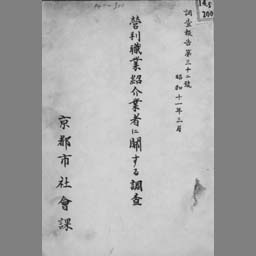 調査報告第三十二號
昭和十一年三月
營利職業紹介業者に關する調査
京都市社會課
14.5
200